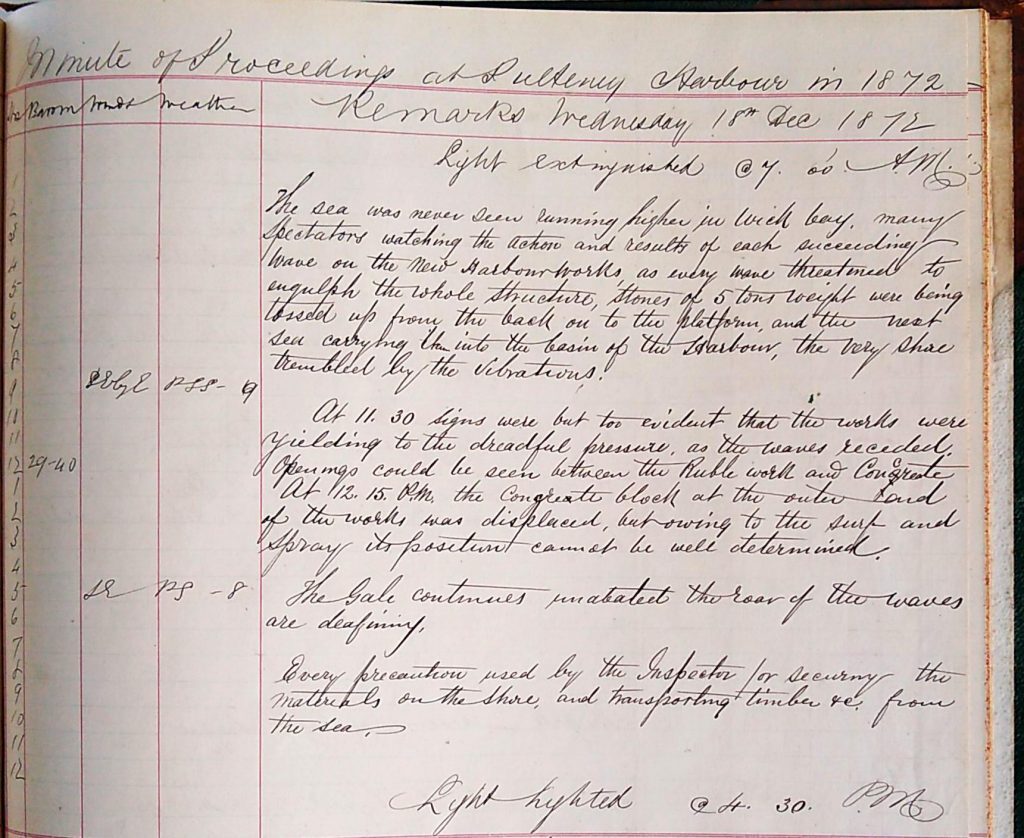 Minute of Proceedings at Pulteney Harbour in 1872
Barom Winds Weather Remarks Wednesday 18th Dec 1872
Light extinguished @ 7. 00. A.M.
The sea was never seen running higher in Wick bay, many
Spectators watching the action and results of each succeeding
wave on the New Harbour works, as every wave threatened to
engulph the whole structure, stones of 5 tons weight were being
tossed up from the back on to the platform, and the next
sea carrying them into the basin of the Harbour, the very shore
trembled by the vibrations.
SEbyE RSS - 9
At 11. 30 signs were but too evident that the works were
yielding to the dreadful pressure, as the waves receded,
12 29-40 Openings could be seen between the Ruble work and Congreate
At 12. 15. P.M. the Congreate block at the outer end
of the works was displaced, but owing to the surf and
spray its position cannot be well determined.
SE RS - 8 The Gale continues unabated the roar of the waves
are deafining,
Every precaution used by the Inspector for securing the
materials on the shore, and transporting timber &c. from
the sea.
Light lighted @ 4. 30. P.M.